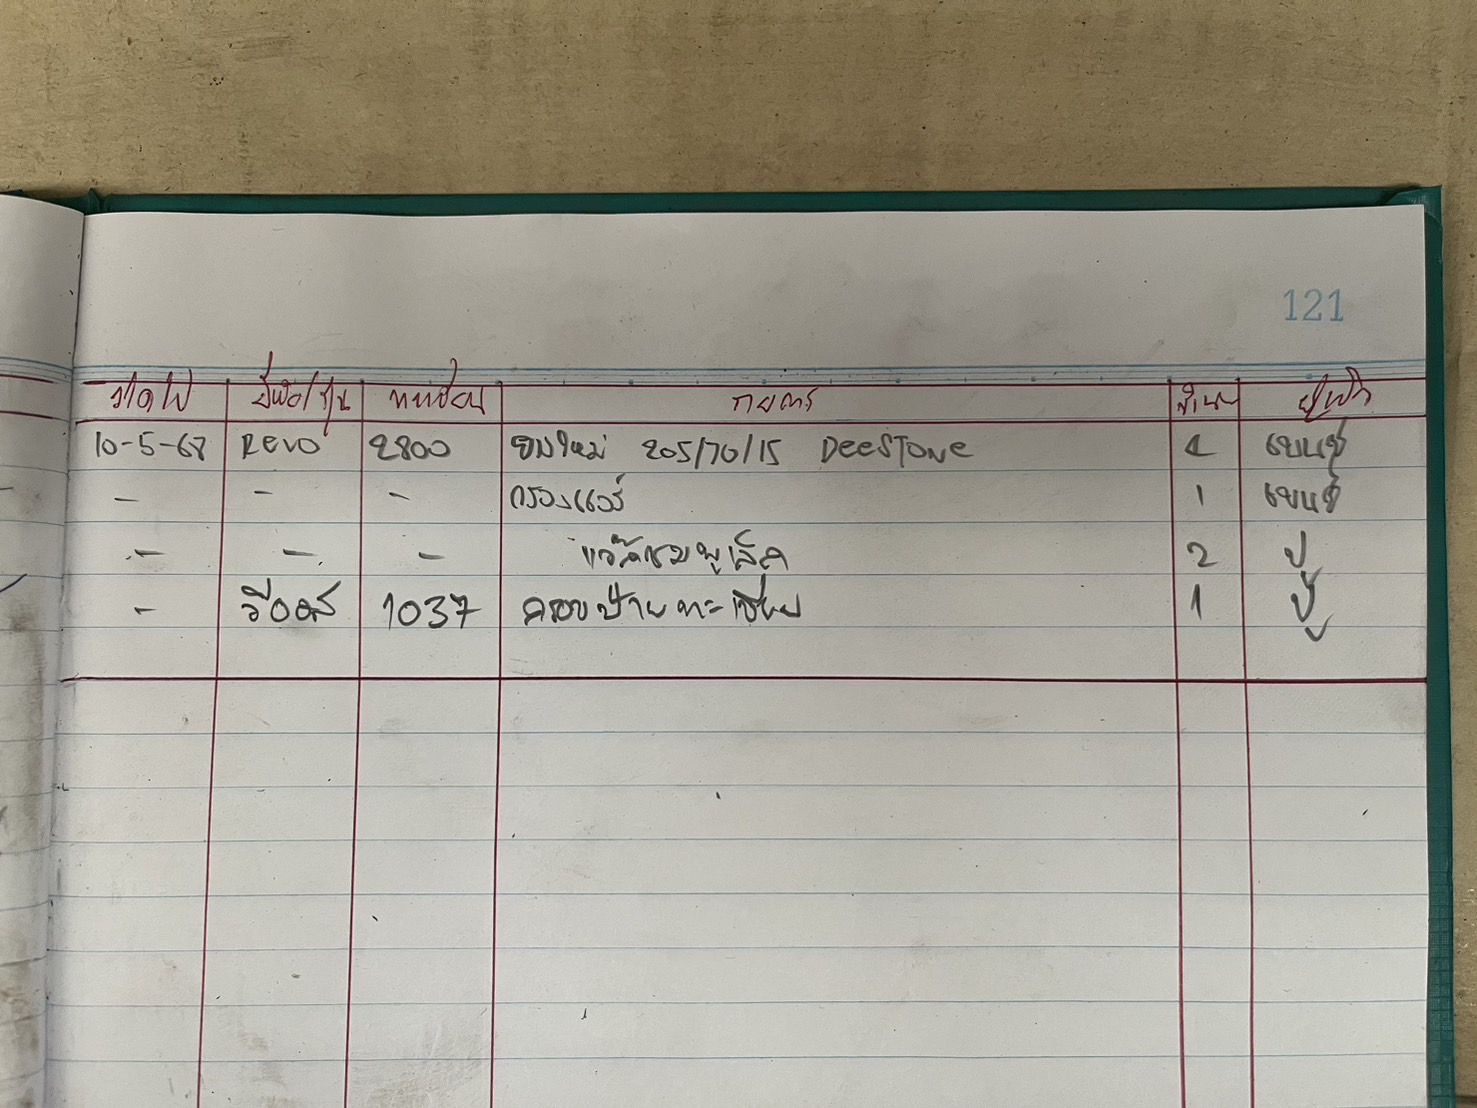 121
ยี่ห้อ/รุ่น ทะเบียน รายการ จำนวน
10-5-68 Revo 2800 ยางใหม่ 205/70/15 DeeSTone
- - - กรองแอร์ 1
- - - 2 ปู
- วีออส 1037 ครอบป้ายทะเบียน 1 ปู